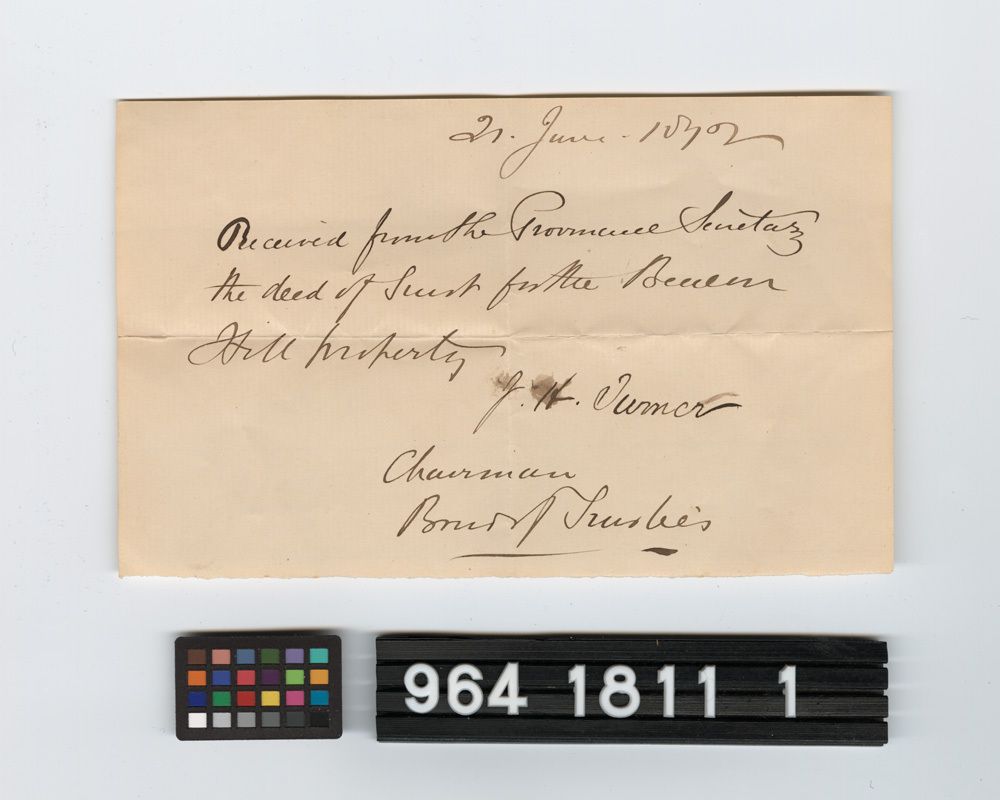 21. June. 1892
Received from the Provincial Secretary
the deed of Trust for the Beacon
Hill property
J. H. Turner
Chairman
Board of Trustees
964 1811 1